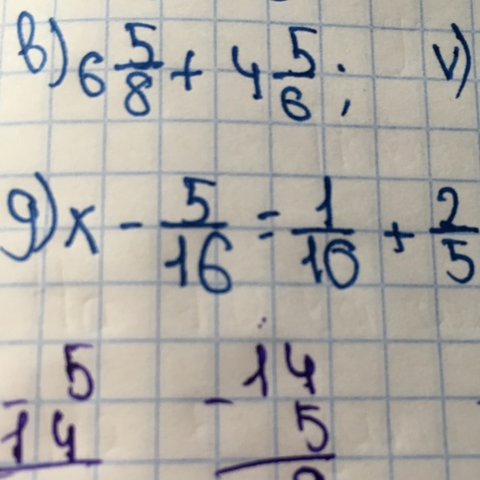 в) 6 5/8 + 4 5/6; v)
g) x - 5/16 = 1/10 + 2/5
- 5 - 14
14 5